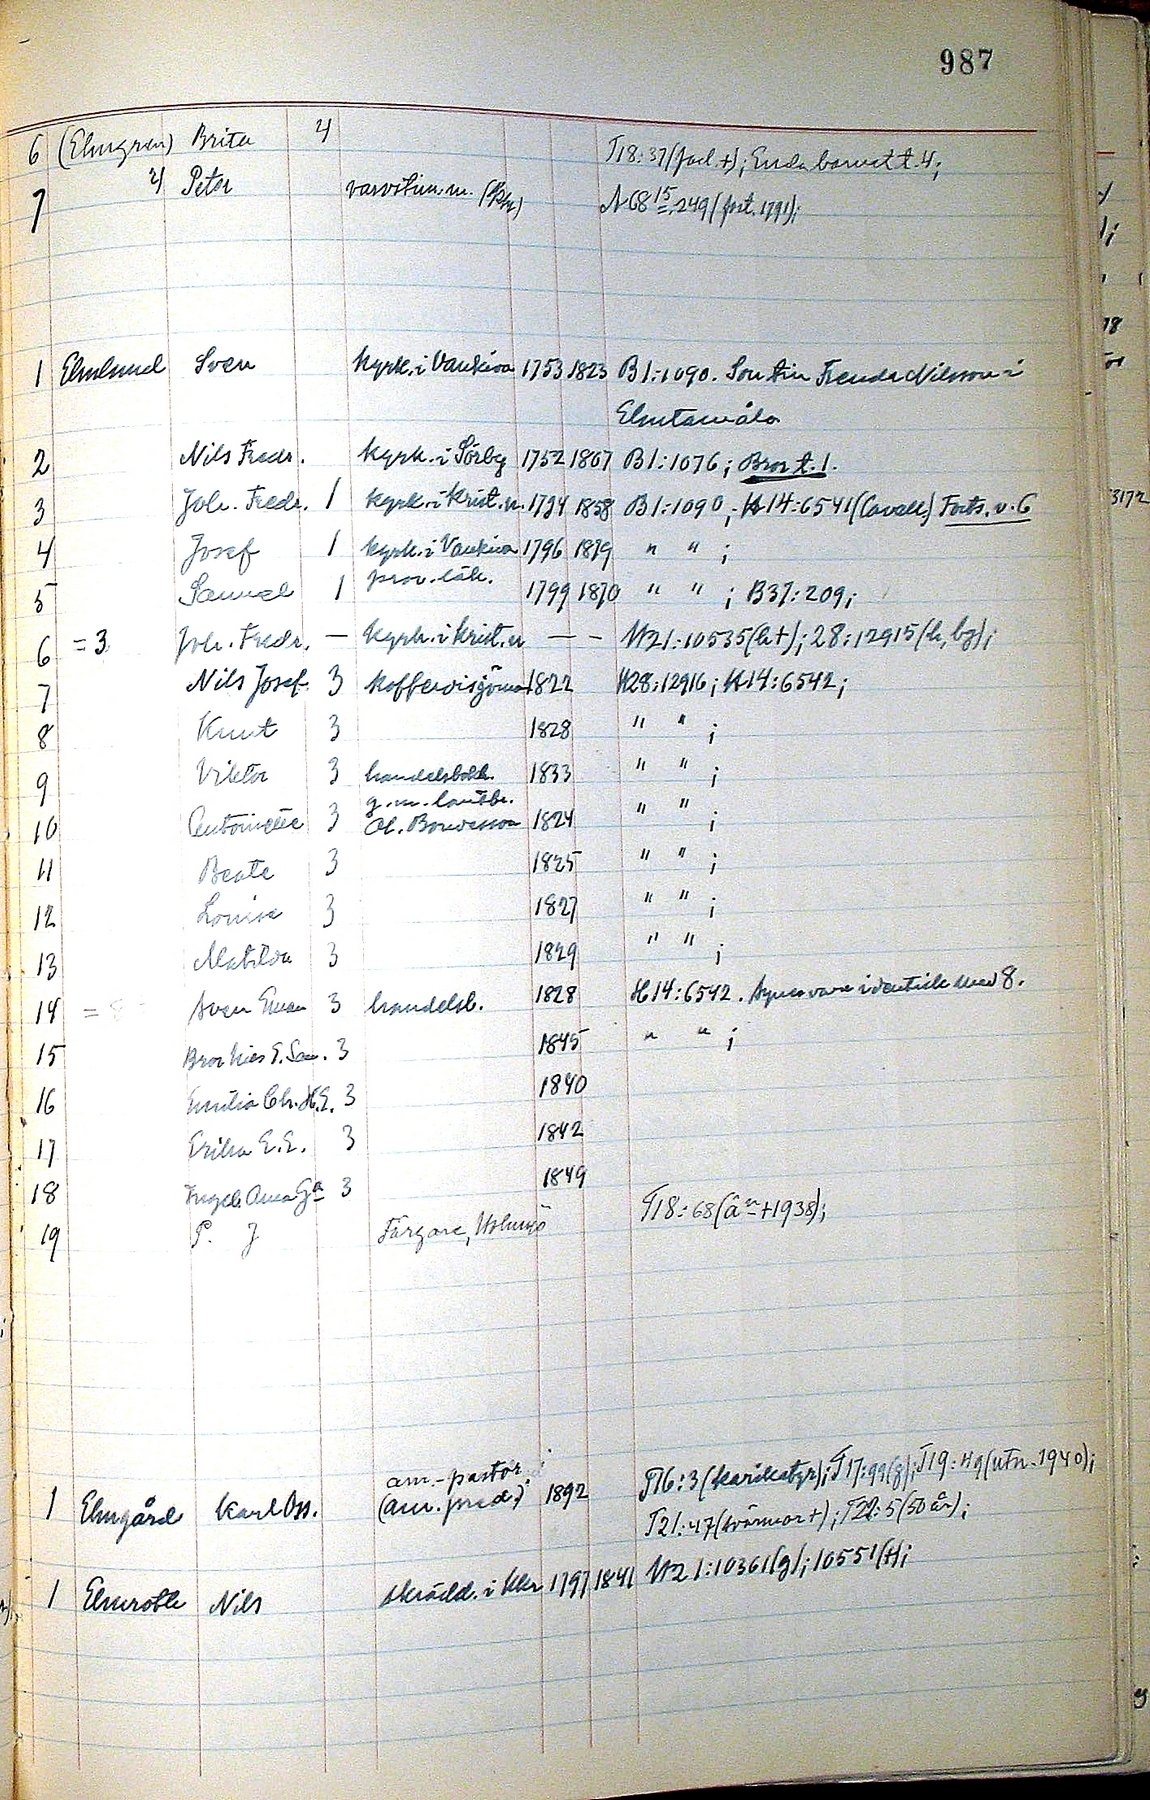 987
6 (Elmgren) Brita 4 T18:37(fael.+); Enda barnet t. 4;
7 4) Peter N 68 15 249 (fört. 1791);
1 Elmlund Sven kyrk. i Vankiva 1753 1823 B1:1090. Son till Frende Nilsson i
Elmtamåla
2 Nils Fredr. kyrk. i Sörby 1752 1807 B1:1076; Bror t. 1.
3 Joh. Fredr. 1 kyrk. i Krist.n. 1794 1858 B1:1090; H14:6541(Cavall.) Forts. v. 6
4 Josef 1 kyrk. i Vankiva 1796 1879 " " ;
5 Samuel 1 prov. läk. 1799 1870 " " ; B37:209;
6 = 3 Joh. Fredr. — kyrk. i Krist.n — — H21:10535(h+); 28:12915(h, bg);
7 Nils Josef 3 1822 H28:12916; H14:6542;
8 Knut 3 1828 " " ;
9 Viktor 3 handelsbokh. 1833 " " ;
g. m. lantbr.
10 Antoinette 3 Ol. 1824 " " ;
11 Beate 3 1825 " " ;
12 Louise 3 1827 " " ;
13 Matilda 3 1829 " " ;
14 = 8 Sven Eman 3 handelsb. 1828 H14:6542. Synes vara identisk med 8.
15 3 1845 " " ;
16 Emilia Ch. H.E. 3 1840
17 Erika E. E. 3 1842
18 Ingeb. Anna Ga 3 1849
19 P. J Färgare, T18:68(än +1938);
am.-pastor
1 Elmgård Karl Oss. (am. pred.) 1892 T16:3(karikatyr); T17:99(g); T19:49(utn. 1940);
T21:47(svärmor+); T22:5(50 år);
1 Elmroth Nils skrädd. i Kkr 1797 1841 H21:10361(g); 10551(+);